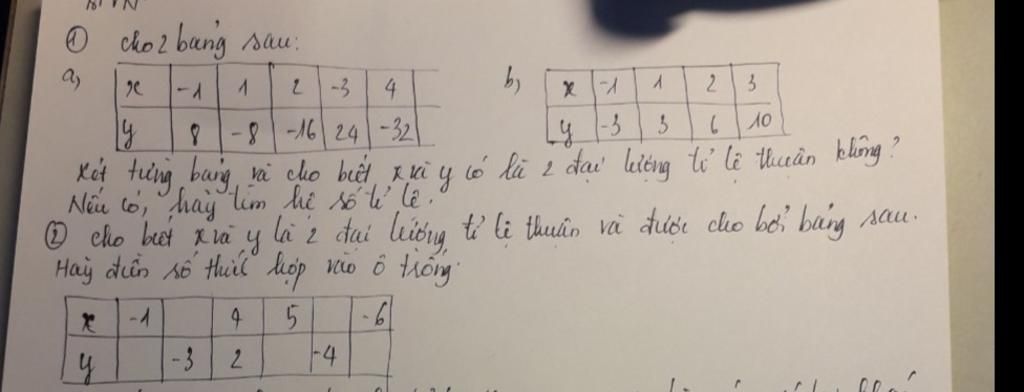 BTVN
① cho 2 bảng sau:
a, x -1 1 2 -3 4
y 8 -8 -16 24 -32
b, x -1 1 2 3
y -3 3 6 10
Xét từng bảng và cho biết x và y có là 2 đại lượng tỉ lệ thuận không?
Nếu có, hãy tìm hệ số tỉ lệ.
② cho biết x và y là 2 đại lượng tỉ lệ thuận và được cho bởi bảng sau.
Hãy điền số thích hợp vào ô trống.
x -1 4 5 -6
y -3 2 -4